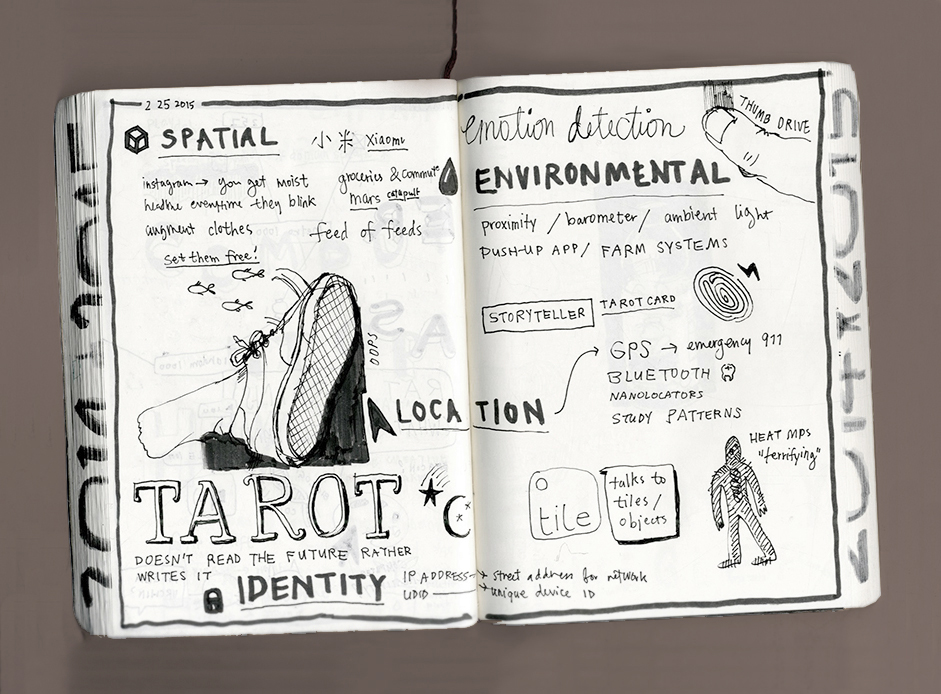 2 25 2015
SPATIAL
小米 Xiaomi
instagram → you get moist
headline everytime they blink
augment clothes
set them free!
groceries & commute
mars catapult
feed of feeds
OOPS
LOCATION
TAROT
DOESN'T READ THE FUTURE RATHER
WRITES IT
IDENTITY
IP ADDRESS → street address for network
UDID → unique device ID
emotion detection
THUMB DRIVE
ENVIRONMENTAL
proximity / barometer / ambient light
PUSH-UP APP / FARM SYSTEMS
STORYTELLER
TAROT CARD
GPS → emergency 911
BLUETOOTH
NANOLOCATORS
STUDY PATTERNS
HEAT MPS
"terrifying"
tile
talks to
tiles/
objects